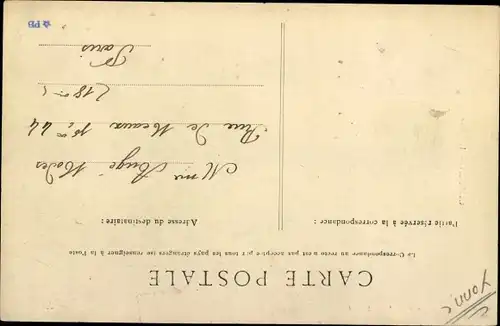 CARTE POSTALE
La Correspondance au recto n'est pas acceptée par tous les pays étrangers (se renseigner à la Poste
Partie réservée à la correspondance :
Adresse du destinataire :
Mme Augé Modes
Rue de Meaux
Paris
PB